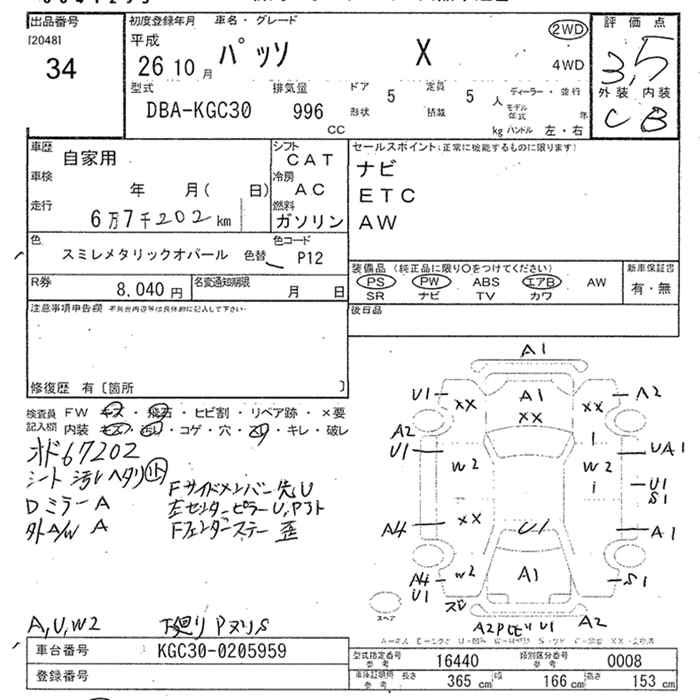 出品番号
[2048]
34
初度登録年月 車名・グレード
平成
26 10 月
パッソ X
2WD
4WD
評価点
3,5
外装 内装
C B
型式 排気量 ドア 定員
DBA-KGC30 996 CC
5 5 人
形状 積載 kg
ディーラー・並行
モデル年式 年
ハンドル 左・右
車歴 自家用
シフト CAT
車検 年 月( 日)
冷房 AC
走行 6万7千202km
燃料 ガソリン
色 スミレメタリックオパール 色替
色コード P12
R券 8,040 円
名変通知期限 月 日
セールスポイント(正常に機能するものに限ります)
ナビ
ETC
AW
装備品(純正品に限り○をつけてください)
PS PW ABS エアB AW
SR ナビ TV カワ
新車保証書
有・無
後日品
注意事項申告欄
修復歴 有〔箇所 〕
検査員記入欄
FW キズ・飛石・ヒビ割・リペア跡・×要
内装 キズ・汚れ・コゲ・穴・スリ・キレ・破レ
オド67202
シート汚レヘタリ小
Dミラー A
外A/W A
Fサイドメンバー先U
左センターピラーU,Pヌト
Fフェンダーステー歪
A,U,W2
下廻り Pヌリ,S
A1
U1
XX
A1
XX
XX
A2
A2
U1
W2
W2
UA1
U1
S1
A4
XX
U1
A1
A4
U1
W2
A1
S1
スペア
U1
A2
車台番号 KGC30-0205959
登録番号
型式指定番号 参考 16440
類別区分番号 参考 0008
車検証類根 参考 長さ 365 cm 幅 166 cm 高さ 153 cm